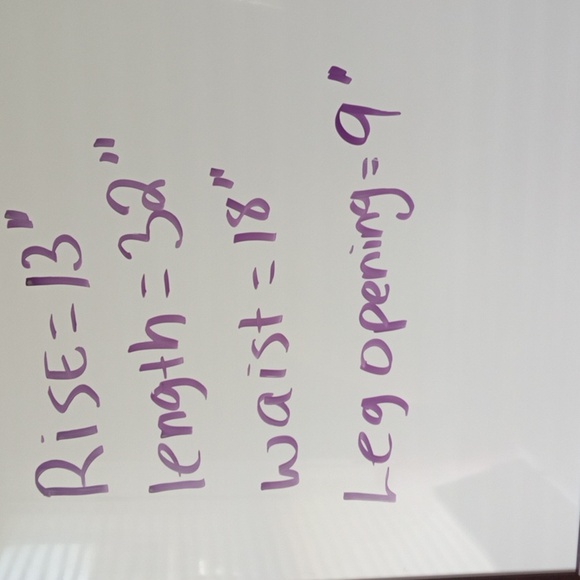 RiSE = 13"
length = 32"
waist = 18"
Leg opening = 9"